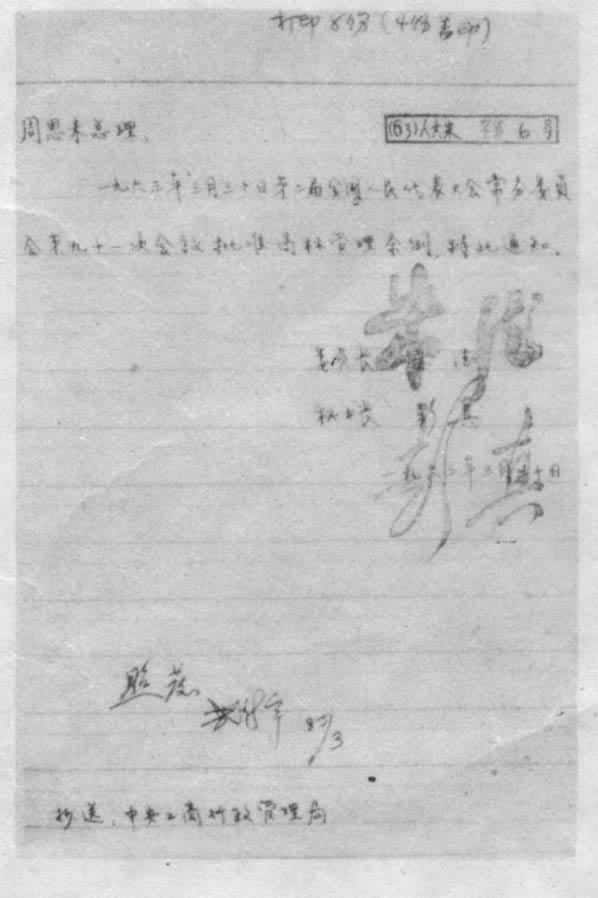 打印8份（4份盖印）
周恩来总理、
(63)人大常字第6号
一九六三年三月三十日第二届全国人民代表大会常务委员
会第九十一次会议批准商标管理条例，特此通知。
委员长 朱德
秘书长 彭真
一九六三年三月三十日
照发
3
抄送：中央工商行政管理局